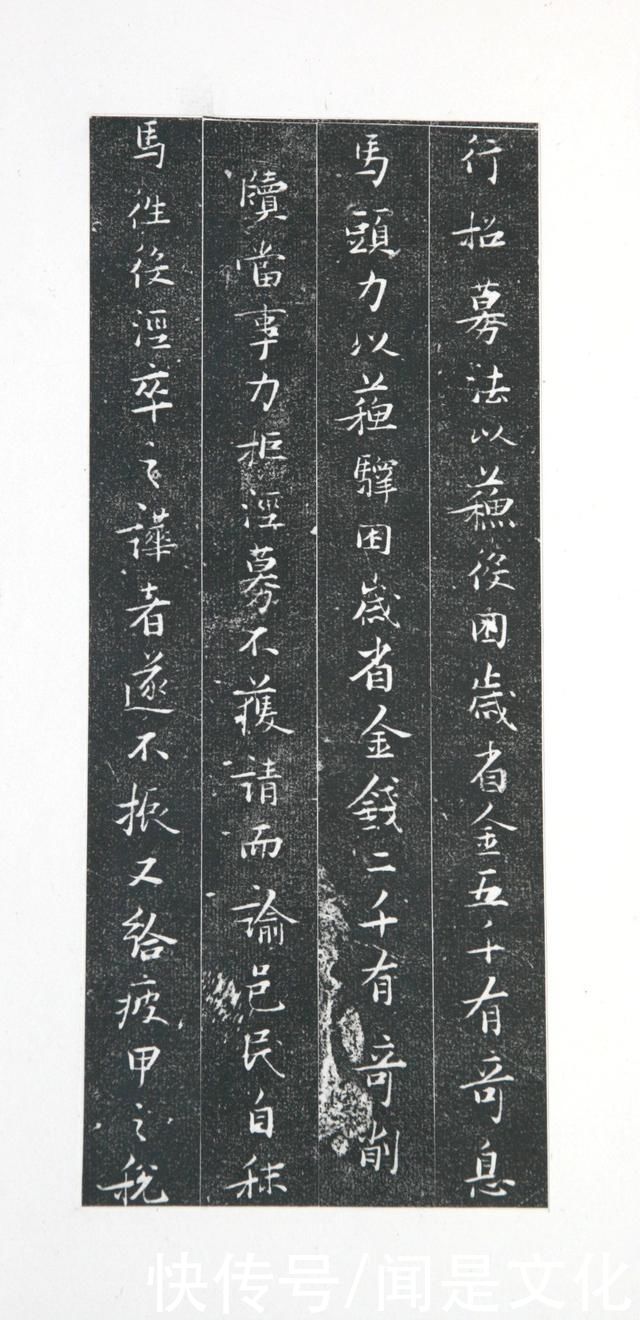 行招募法以蘓役困歲省金五千有奇息
馬頭力以蘓驛困歲省金錢二千有奇削
牘當事力拒淫募不獲請而諭邑民自秣
馬往役淫卒之譁者遂不振又給疲甲之税
快传号/闻是文化